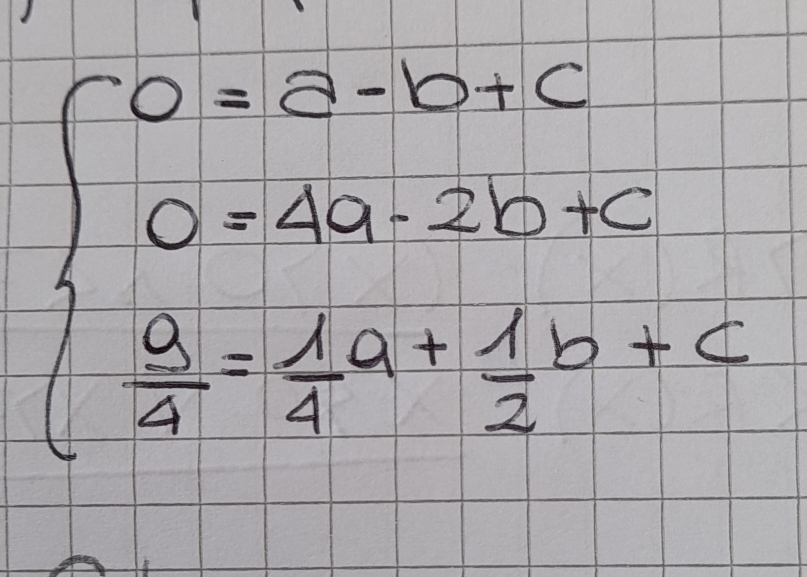 0 = a - b + c
0 = 4a - 2b + c
9/4 = 1/4 a + 1/2 b + c